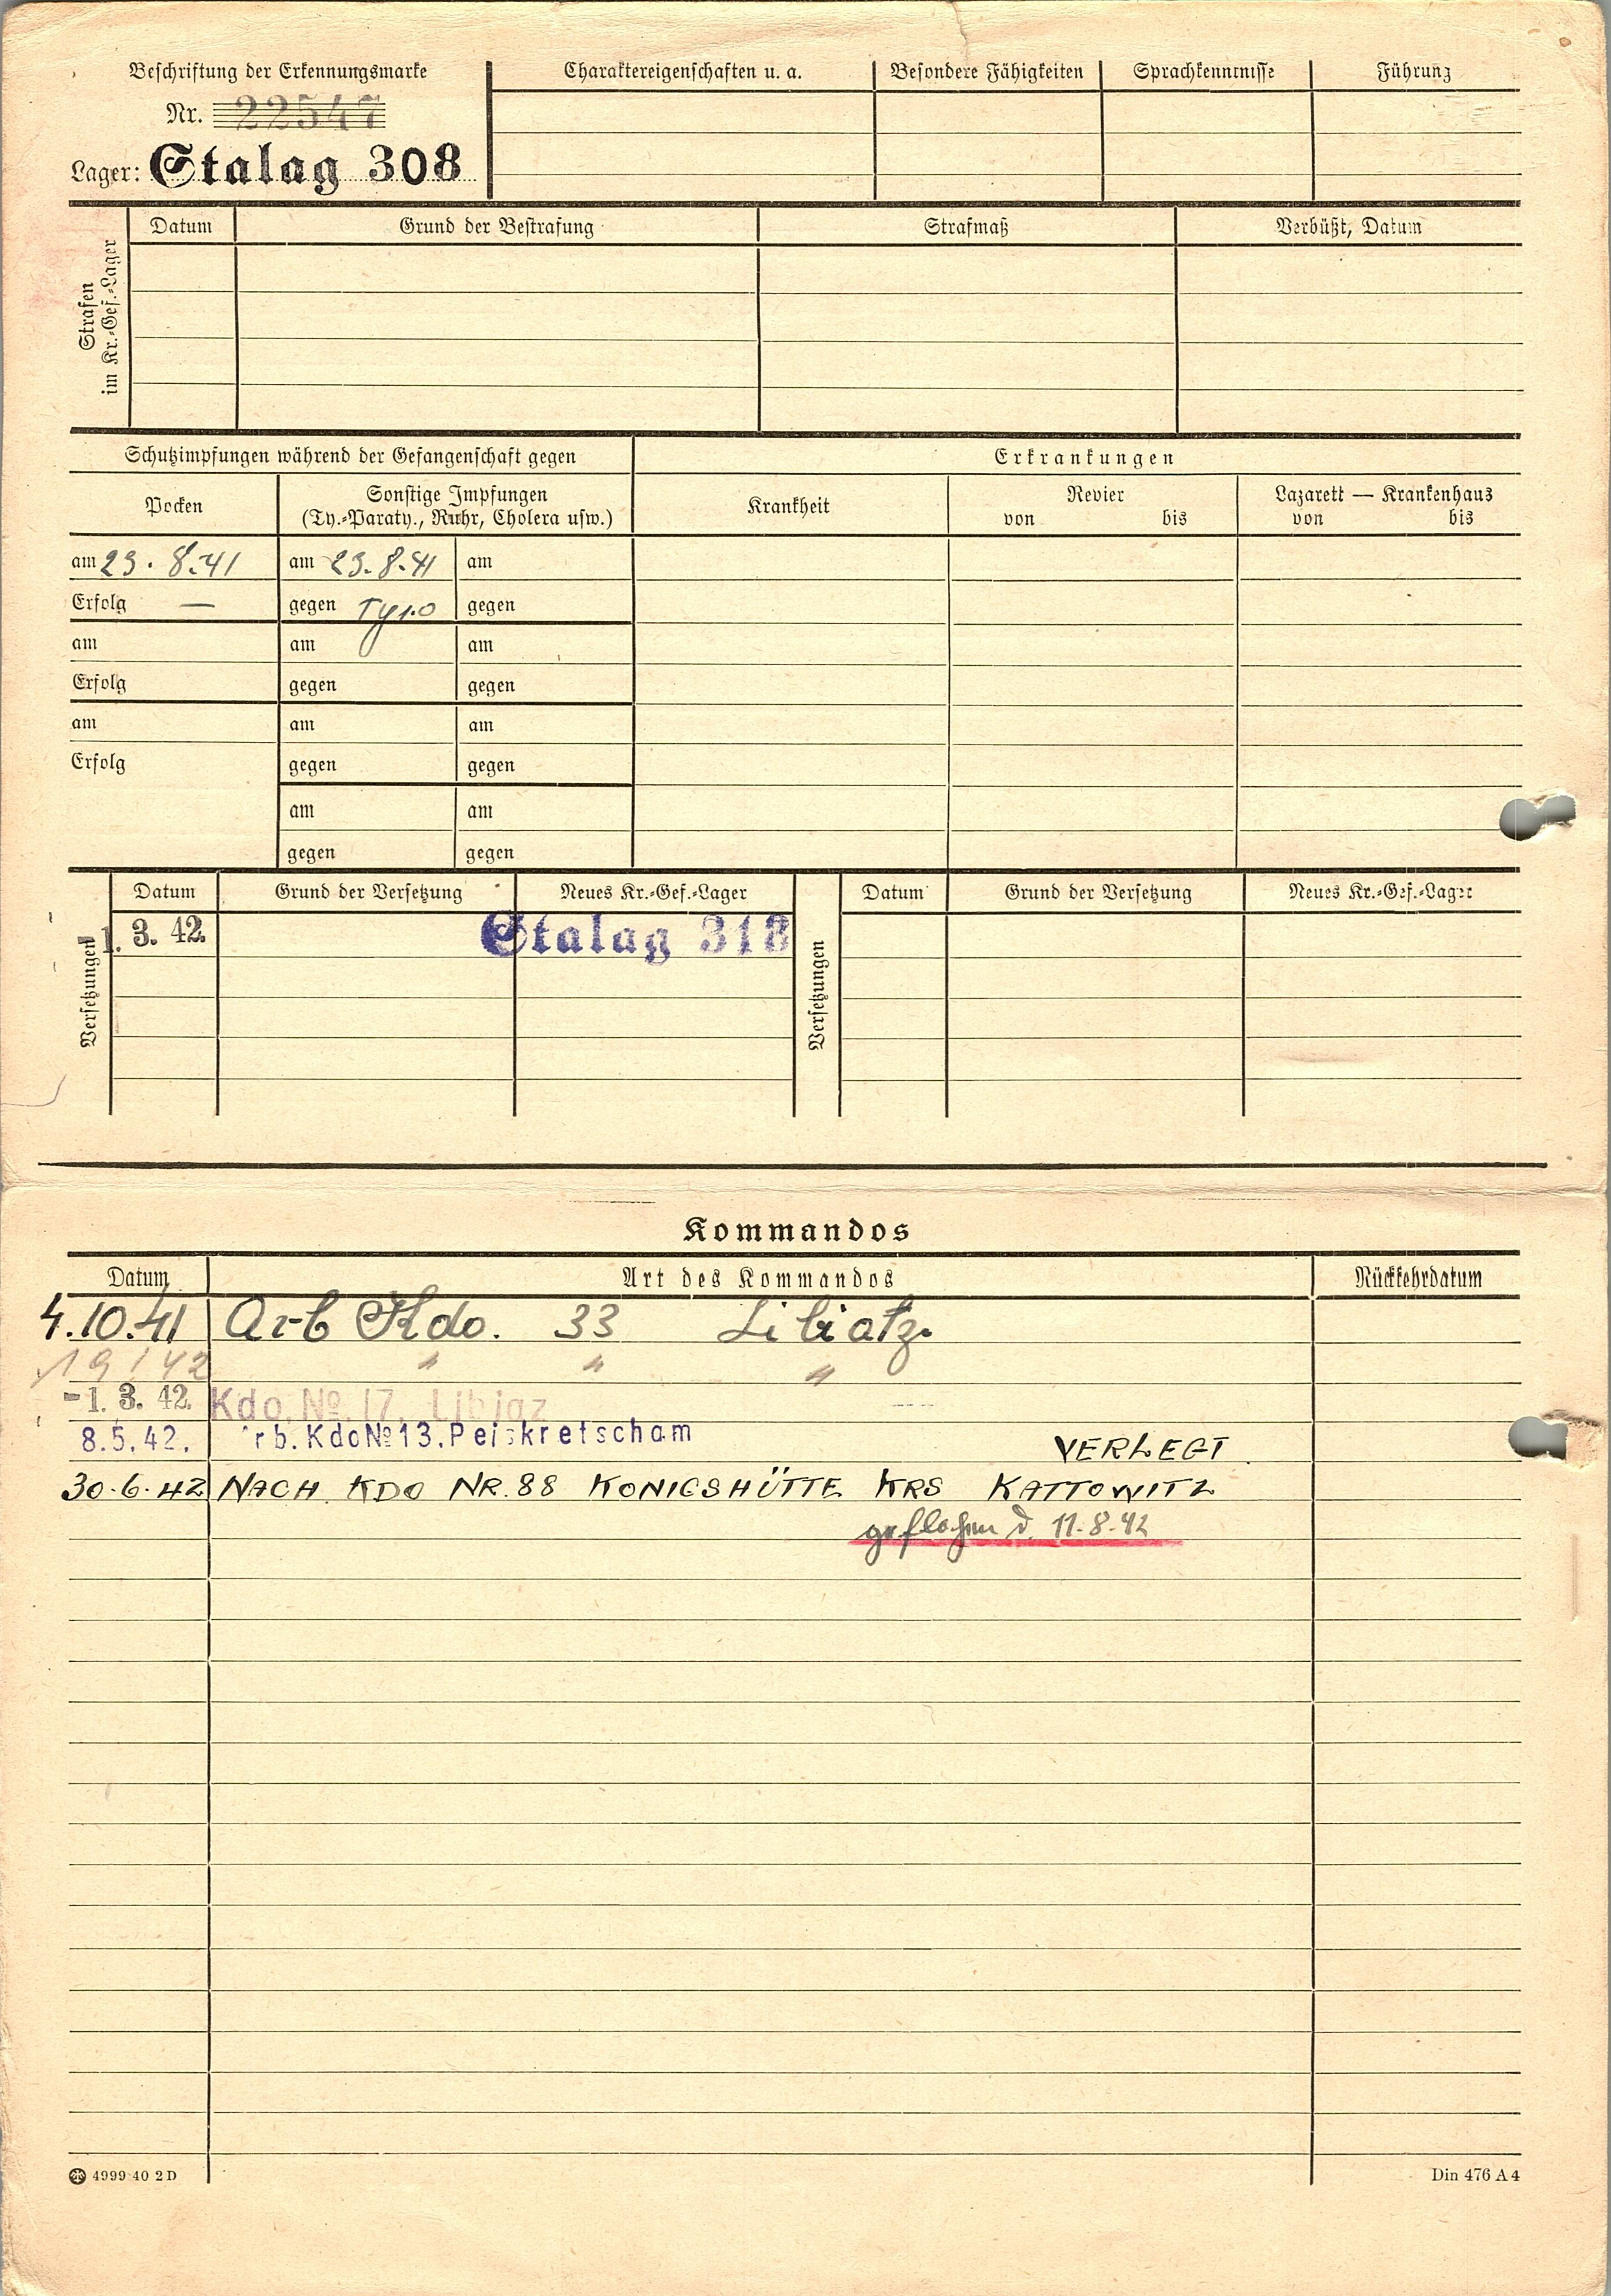 Beschriftung der Erkennungsmarke
Nr. 22547
Lager: Stalag 308
Charaktereigenschaften u. a.
Besondere Fähigkeiten
Sprachkenntnisse
Führung
Strafen
im Kr.-Gef.-Lager
Datum
Grund der Bestrafung
Strafmaß
Verbüßt, Datum
Schutzimpfungen während der Gefangenschaft gegen
Erkrankungen
Pocken
Sonstige Impfungen
(Ty.-Paraty., Ruhr, Cholera usw.)
Krankheit
Revier
von bis
Lazarett — Krankenhaus
von bis
am 23. 8. 41 am 23. 8. 41 am
Erfolg — gegen gegen
am am am
Erfolg gegen gegen
am am am
Erfolg gegen gegen
am am
gegen gegen
Versetzungen
Datum Grund der Versetzung Neues Kr.-Gef.-Lager
1. 3. 42. Stalag 318
Versetzungen
Datum Grund der Versetzung Neues Kr.-Gef.-Lager
Kommandos
Datum Art des Kommandos Rückkehrdatum
4.10.41 Arb Kdo. 33 Libiatz.
" " "
-1. 3. 42. Kdo. No. 17. Libiaz
8.5.42. rb. Kdo No 13. Peiskretscham VERLEGT
30.6.42 NACH KDO NR. 88 KONIGSHÜTTE KRS KATTOWITZ
geflohen d. 11.8.42
4999 40 2 D
Din 476 A 4